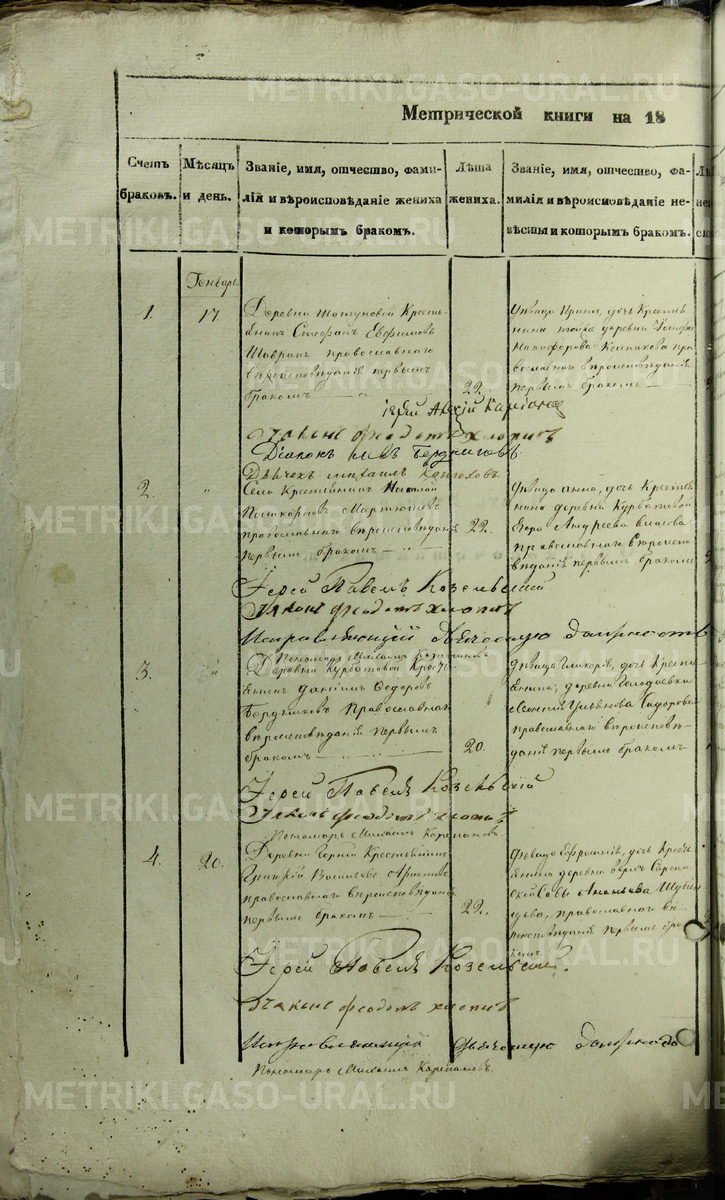 METRIKI.GASO-URAL.RU
Метрической книги на 18
Счетъ браковъ.
Мѣсяцъ и день.
Званіе, имя, отчество, фами-
лія и вѣроисповѣданіе жениха
и которымъ бракомъ.
Лѣта
жениха.
Званіе, имя, отчество, фа-
милія и вѣроисповѣданіе не-
вѣсты и которымъ бракомъ.
Генварь
1.
17.
Деревни Шатуновой Кресть-
янинъ Стефанъ Евфимовъ
Шавринъ православнаго
вѣроисповѣданія первымъ
бракомъ
22
дѣвица Ирина, дочь Крестья
нина той же деревни
Никифорова пра-
вославнаго вѣроисповѣданія
первымъ бракомъ
іерей Алексій
Дьяконъ Феодотъ Хлопинъ
Діаконъ Левъ Бердниговъ
Дьячекъ Михаилъ
2.
"
Села Крестьянинъ Николай
Мартюшевъ
православнаго вѣроисповѣданія
первымъ бракомъ
22.
дѣвица Анна, дочь Крестья
нина деревни Курбатовой
Андреева Власова
православнаго вѣроиспо
вѣданія первымъ бракомъ
Іерей Павелъ Козельскій
Дьяконъ Феодотъ Хлопинъ
Исправляющій Дьяческую Должность
Пономарь Михаилъ Карпаковъ
3.
"
Деревни Курбатовой Кресть
янинъ Даніилъ Федоровъ
Бердниковъ Православнаго
вѣроисповѣданія первымъ
бракомъ
20.
дѣвица Гликерія, дочь Крестья
янина, деревни Голодаевки
Сидорова
православнаго вѣроисповѣ-
данія первымъ бракомъ
Іерей Павелъ Козельскій
Дьяконъ Феодотъ Хлопинъ
Пономарь Михаилъ Карпаковъ
4.
20.
Деревни Горной Крестьянинъ
Григорій Васильевъ
православнаго вѣроисповѣданія
первымъ бракомъ
22.
дѣвица Ефросинія, дочь Кресть
янина деревни
Савы Ананьева
православнаго вѣ-
роисповѣданія первымъ бра
комъ.
Іерей Павелъ Козельскій.
Дьяконъ Феодотъ Хлопинъ
Исправляющій Дьяческую Должность
Пономарь Михаилъ Карпаковъ.